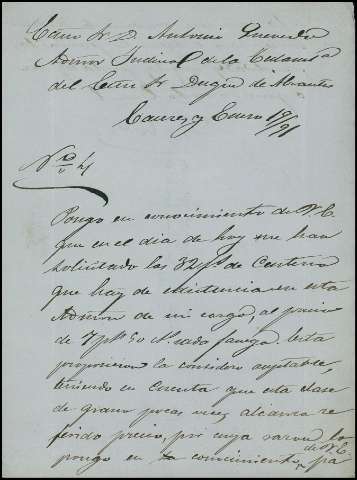 Exmo Sr D. Antonio Quevedo
Admor Judicial de la
del Exmo Sr Duque de Abrantes
Caceres y Enero 19/91
No 4
Pongo en conocimiento de V. E.
que en el dia de hoy me han
solicitado las 32 fs de Centeno
que hay de existencia en esta
Admon de mi cargo, al precio
de 7 pts 50 cts cada fanega. Esta
proposicion la considero aceptable,
teniendo en cuenta que esta clase
de grano pocas veces alcanza re
ferido precio, por cuya razon lo
pongo en conocimiento de V. E. pa